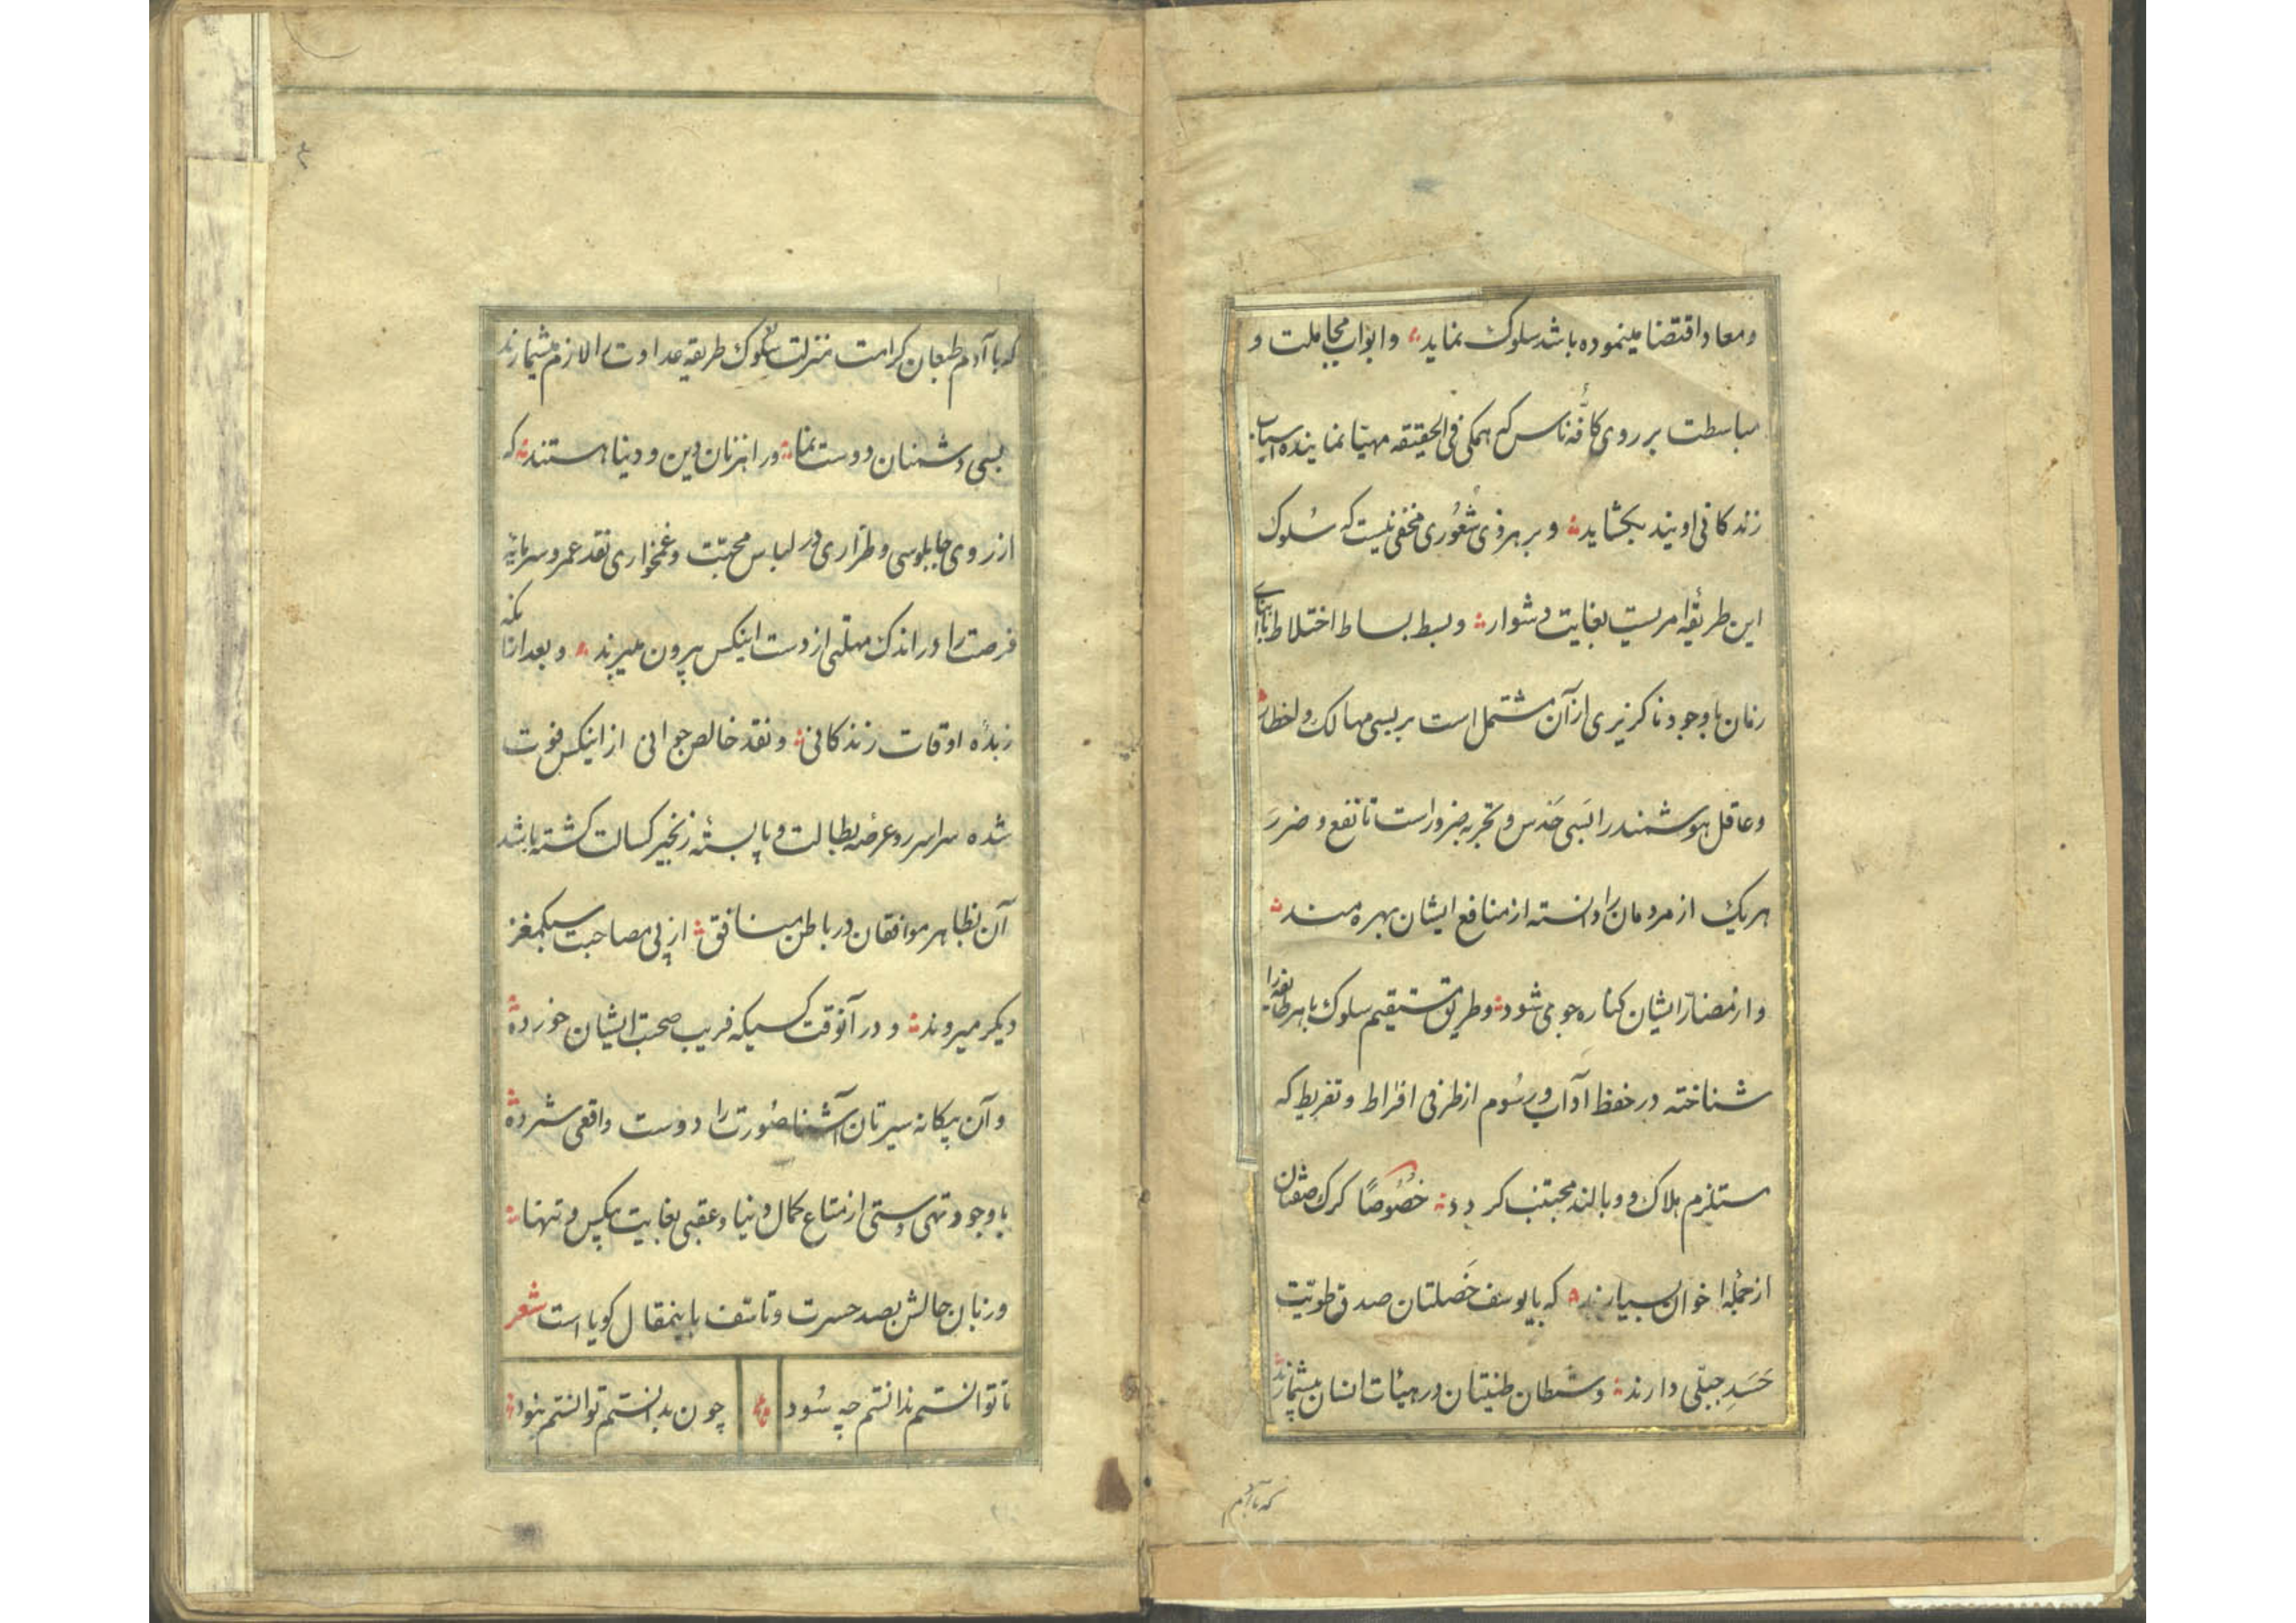 ومعاد اقتضا مینموده باشد سلوک نماید وابواب مجاملت و
مباسطت بر روی کافّهٔ ناس که همگی فی الحقیقه مهیّا نماینده اسباب
زندکانی اویند بکشاید و بر هر ذی شعُوری مخفی نیست که سُلوک
این طریقهٔ امریست بغایت دشوار و بسط بساط اختلاط با ابنای
زمان با وجود ناکزیری از آن مشتمل است بر بسی مهالک و اخطار
وعاقل هوشمند را بَسی حَدس و تجربه ضرور است تا نفع و ضرر
هریک از مردمان را دانسته از منافع ایشان بهره مند
و از مضارّ ایشان کناره جوی شود و طریق مستقیم سلوک با هر طایفه را
شناخته در حفظ آداب و رسُوم از طرفی افراط و تفریط که
مستلزم هلاک و وبالند مجتنب کردد خصُوصًا کرک صفتان
از جملهٔ اخوان بسیارند که با یوسف خَصلتان صدق طویّت
حَسَدِ جبلّی دارند و شیطان طینتان در هیئات انسان بیشمارند
که با آدم
که با آدم طبعان کرامت منزلت سلوک طریقه عداوت را لازم میشمارند
بسی دشمنان دوست نما و راهزنان دین و دنیا هستند که
از روی چاپلوسی و طرّاری در لباس محبّت و غمخواری نقد عمر و سرمایهٔ
فرصت را در اندک مهلتی از دست اینکس بیرون میبرند و بعد از آنکه
زبدهٔ اوقات زندکانی و نقد خالص جوانی از اینکس فوت
شده سراسر رو عرضهٔ بطالت و پا بستهٔ زنجیر کسالت کشته باشد
آن بظاهر موافقان در باطن منافق از پی مصاحبت سبکمغز
دیکر میروند و در آنوقت کسیکه فریب صحبت ایشان خورده
و آن بیکانه سیرتان آشنا صُورت را دوست واقعی شمرده
با وجود تهی دستی از متاع کمال دنیا و عقبی بغایت بیکس و تنها
و زبان حالش بصد حسرت و تاسّف باینمقال کویا است شعر
تا توانستم ندانستم چه سُود چون بدانستم توانستم نبود